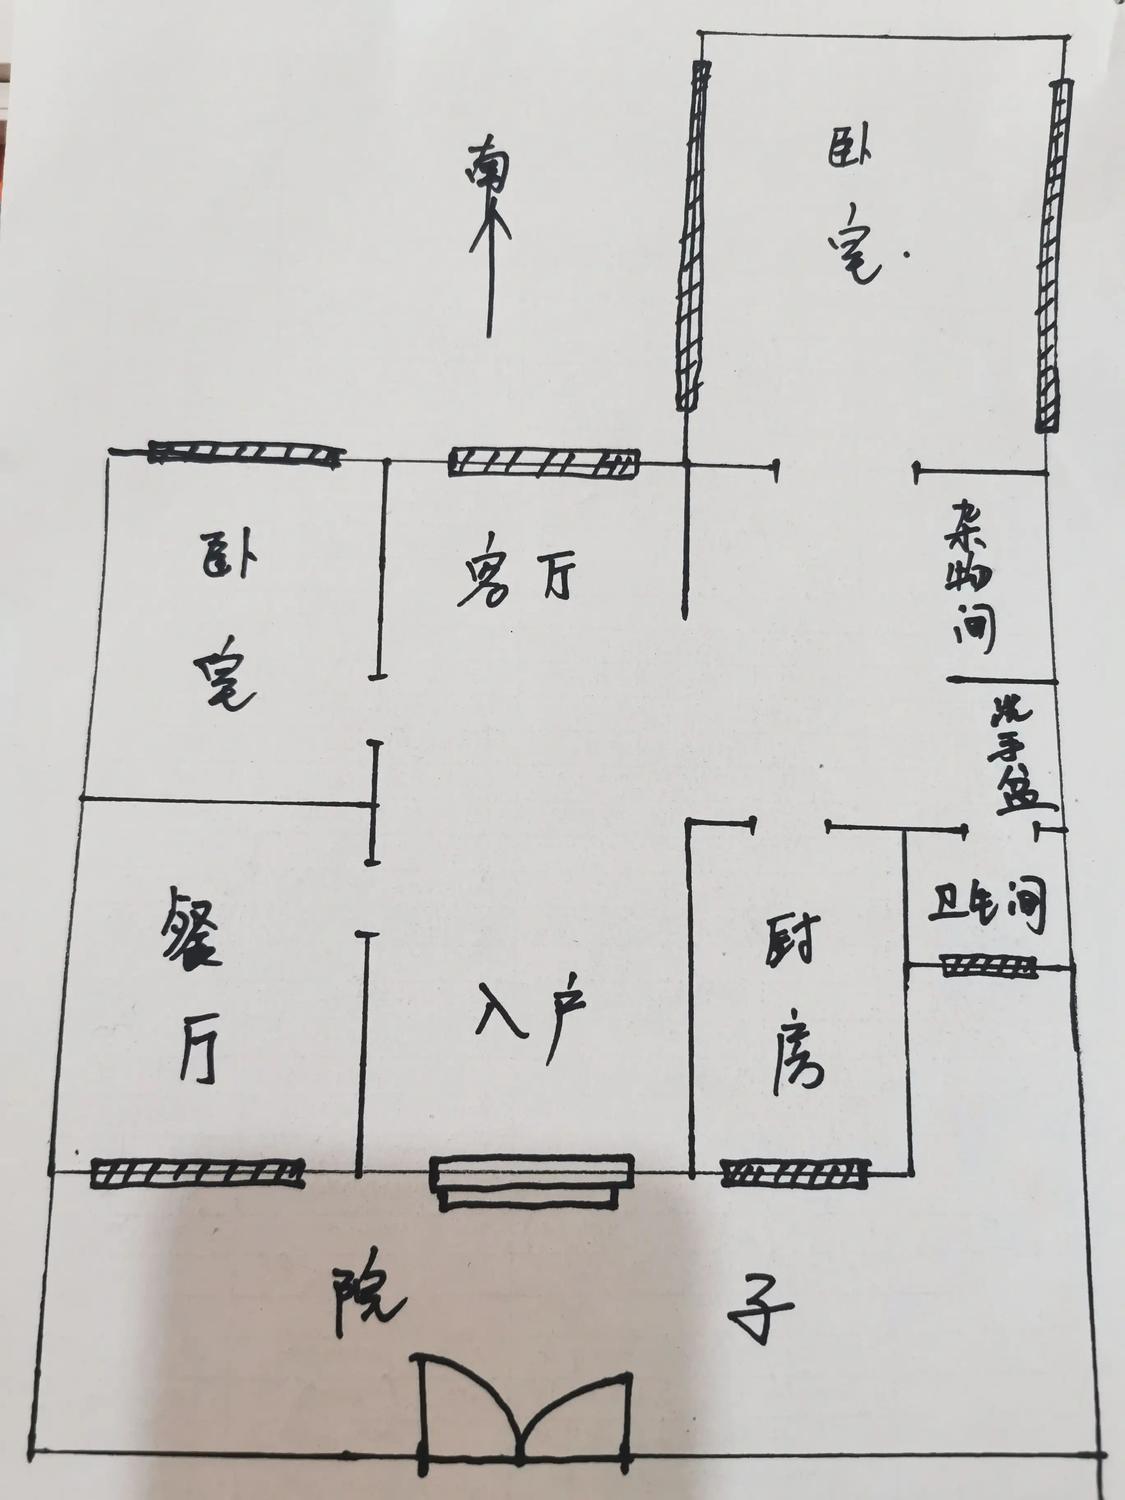 南
卧
室
卧
室
客厅
杂物间
洗手盆
餐
厅
入户
厨
房
卫生间
院子